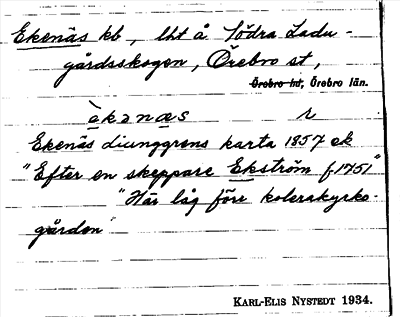 Ekenäs kb, lht å Södra Ladu-
gårdsskogen, Örebro st,
Örebro hd, Örebro län.
èkənæs r
Ekenäs Ljunggrens karta 1857 ek
"Efter en skeppare Ekström f. 1751"
"Här låg förr kolerakyrko-
gården"
KARL-ELIS NYSTEDT 1934.